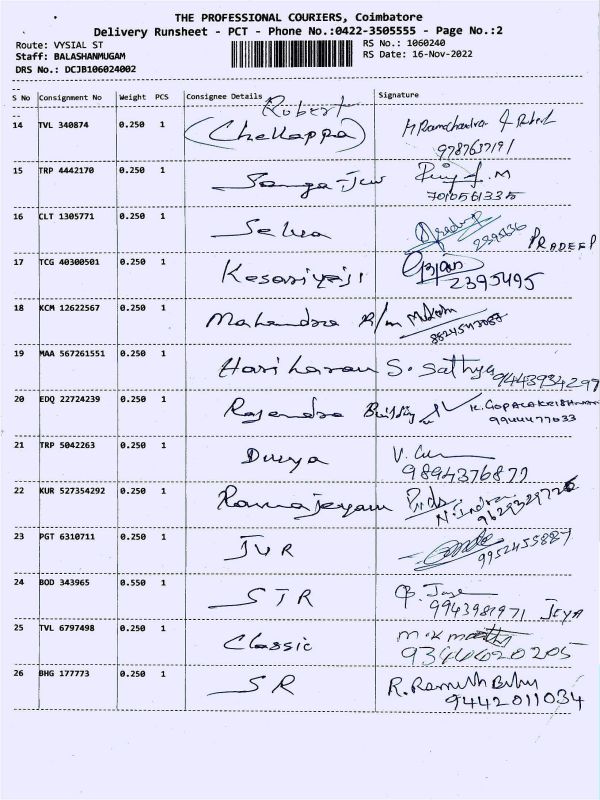 THE PROFESSIONAL COURIERS, Coimbatore
Delivery Runsheet - PCT - Phone No.:0422-3505555 - Page No.:2
Route: VYSIAL ST
RS No.: 1060240
Staff: BALASHANMUGAM
RS Date: 16-Nov-2022
DRS No.: DCJB106024002
S No Consignment No Weight PCS Consignee Details Signature
Robert
14 TVL 340874 0.250 1 (Chellappa)
9787637191
15 TRP 4442170 0.250 1 M
7010561335
16 CLT 1305771 0.250 1 Selva 2395636 PRADEEP
17 TCG 40300501 0.250 1 Kesariyaji
2395495
18 KCM 12622567 0.250 1 Mahendra R/m
19 MAA 567261551 0.250 1 Hariharan S. Sathya
9443934299
20 EDQ 22724239 0.250 1 Rajendra Building K. GOPALAKRISHNAN
9944477033
21 TRP 5042263 0.250 1 Durya V.
9894376877
22 KUR 527354292 0.250 1 Ramajeyam N. Indra
23 PGT 6310711 0.250 1 JVR
9952455887
24 BOD 343965 0.550 1 STR
9943981971 JEYA
25 TVL 6797498 0.250 1 Classic
26 BHG 177773 0.250 1 SR R. Ramesh Babu
9442011034